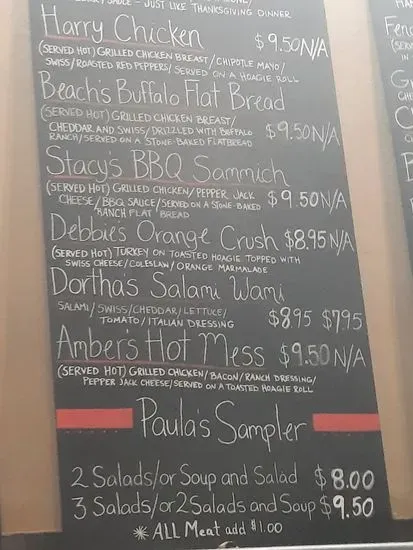 SAUCE - JUST LIKE THANKSGIVING DINNER
Harry Chicken $9.50 N/A
(SERVED HOT) GRILLED CHICKEN BREAST/CHIPOTLE MAYO/
SWISS/ROASTED RED PEPPERS/SERVED ON A HOAGIE ROLL
Beachs Buffalo Flat Bread
(SERVED HOT) GRILLED CHICKEN BREAST/
CHEDDAR AND SWISS/DRIZZLED WITH BUFFALO $9.50 N/A
RANCH/SERVED ON A STONE BAKED FLATBREAD
Stacy's BBQ Sammich
(SERVED HOT) GRILLED CHICKEN/PEPPER JACK $9.50 N/A
CHEESE/BBQ SAUCE/SERVED ON A STONE-BAKED
RANCH FLAT BREAD
Debbies Orange Crush $8.95 N/A
(SERVED HOT) TURKEY ON TOASTED HOAGIE TOPPED WITH
SWISS CHEESE/COLESLAW/ORANGE MARMALADE
Dortha's Salami Wami
SALAMI/SWISS/CHEDDAR/LETTUCE/ $8.95 $7.95
TOMATO/ITALIAN DRESSING
Ambers Hot Mess $9.50 N/A
(SERVED HOT) GRILLED CHICKEN/BACON/RANCH DRESSING/
PEPPER JACK CHEESE/SERVED ON A TOASTED HOAGIE ROLL
Paula's Sampler
2 Salads/or Soup and Salad $8.00
3 Salads/or 2 Salads and Soup $9.50
* ALL Meat add $1.00